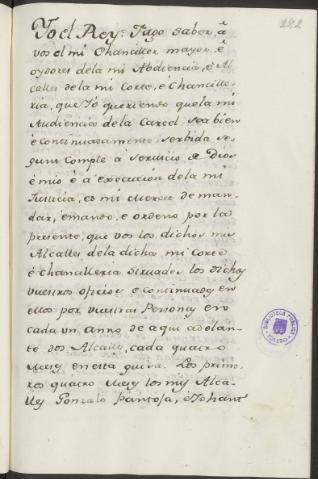 222
Yo el Rey: Fago saber, â
vos el mi Chanciller mayor, é
oydores dela mi Abdiencia, é Al
calles de la mi Corte, é Chancille
ria, que Yo queriendo que la mi
Audiencia de la Carcel sea bien
é continuadamente serbida se-
gunt comple à servicio de Dios
é mio é á execucion dela mi
Justicia, es mi Merced de man-
dar, é mando, e ordeno por la
presente, que vos los dichos mis
Alcalles dela dicha mi Corte
é Chancilleria sirvades los dichos
vuestros oficios é continuadgs en
ellos por vuestras Personas en
cada un anno de aqui adelan-
te dos Alcalles, cada quatro
Meses en esta guisa. Los prime-
ros quatro Meses los mis Alca-
lles Gonzalo Pantoja, é Johant
BIBLIOTECA PÚBLICA
TOLEDO